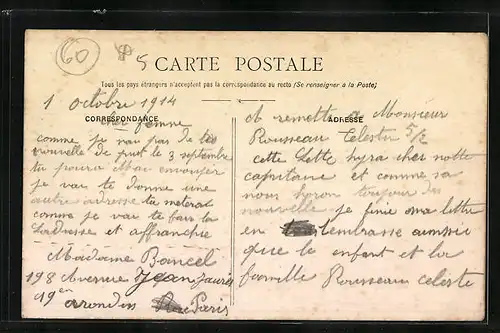 60
5
CARTE POSTALE
Tous les pays étrangers n'acceptent pas la correspondance au recto (Se renseigner à la Poste)
1 octobre 1914
CORRESPONDANCE
cher femme
comme je nau pas de tes
nouvelle de puet le 3 septembre
tu poura Mau envouyer
je vas te donne une
autre adresse tu meteras
comme je vas te faire la
Ladresse et affranchie
Madame Bancel
198 Avenue Jean Jaures
19 en arondis Paris
ADRESSE
A remettre a Monsieur
Rousseau Celestin
cette Lette hyra cher notte
capitaine et comme sa
nous horon toujour des
nouvelle je finie ma lettre
en lembrasse aumsie
que le enfant et la
famille Rousseau celeste